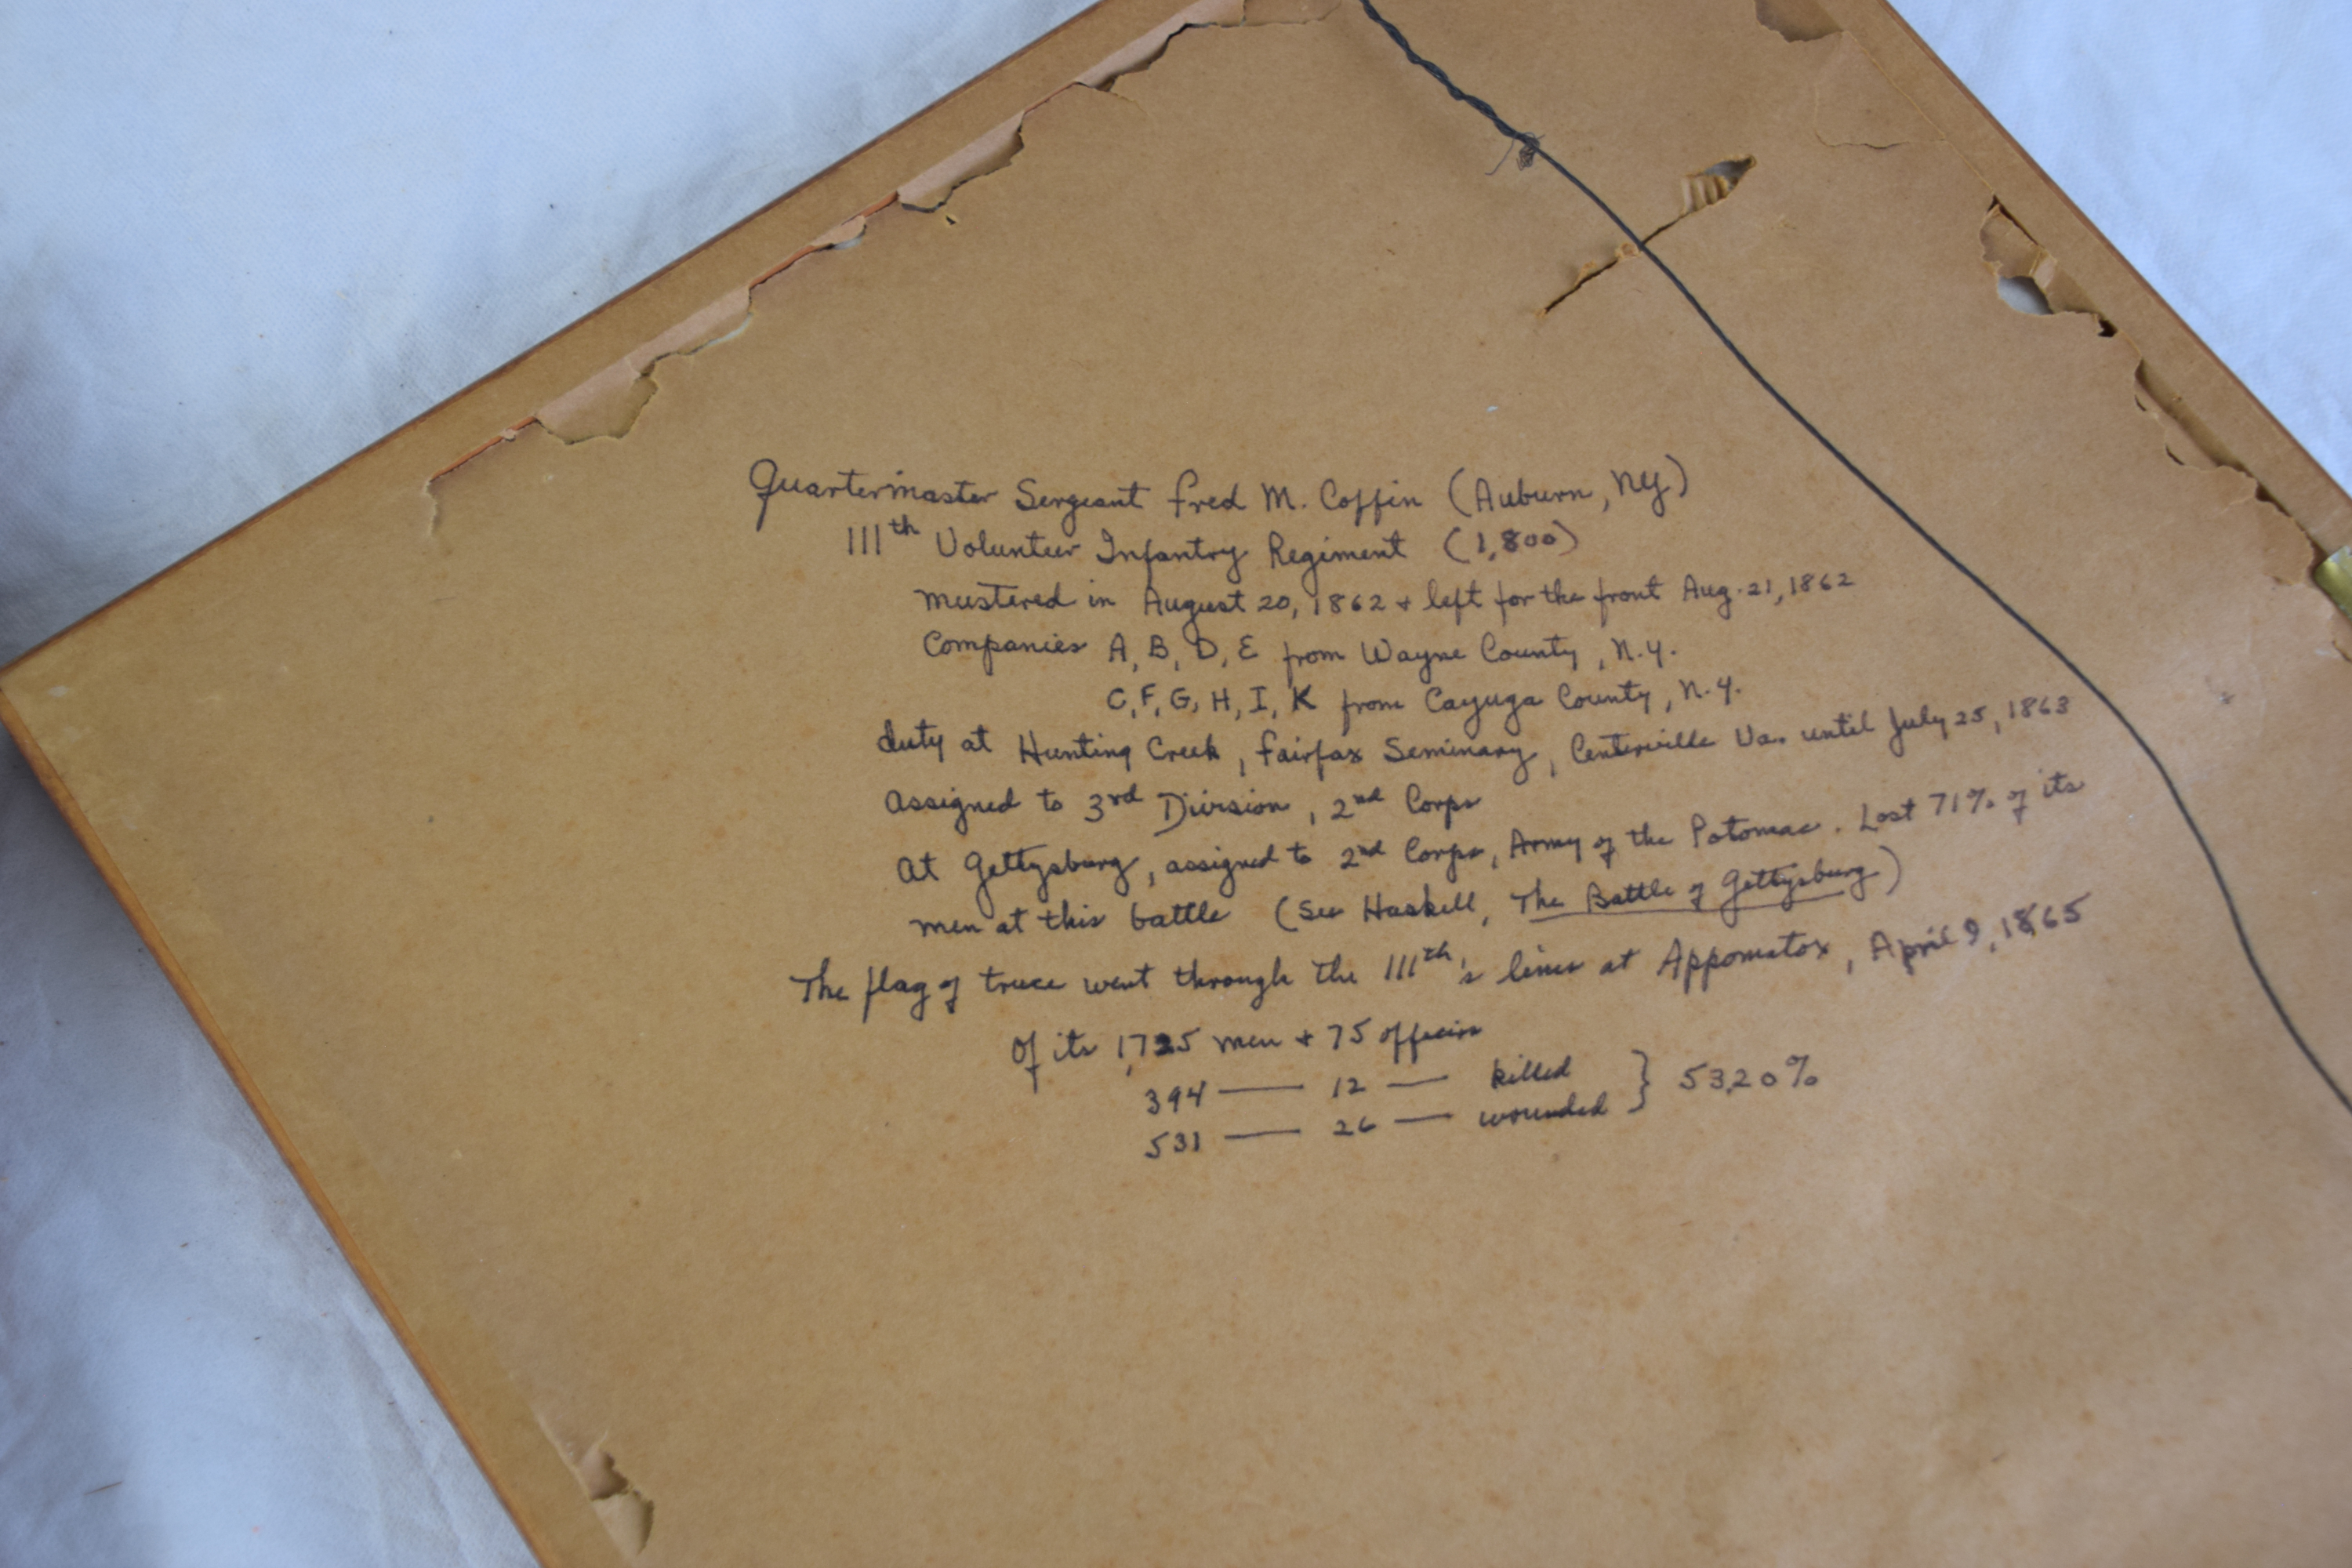 Quartermaster Sergeant Fred M. Coffin (Auburn, NY)
111th Volunteer Infantry Regiment (1,800)
mustered in August 20, 1862 + left for the front Aug. 21, 1862
Companies A, B, D, E from Wayne County, N.Y.
C, F, G, H, I, K from Cayuga County, N.Y.
duty at Hunting Creek, Fairfax Seminary, Centerville Va. until July 25, 1863
Assigned to 3rd Division, 2nd Corps
At Gettysburg, assigned to 2nd Corps, Army of the Potomac. Lost 71% of its
men at this battle (See Haskell, The Battle of Gettysburg)
The flag of truce went through the 111th's lines at Appomatox, April 9, 1865
Of its 1,725 men + 75 officers
394 — 12 — killed } 53.20%
531 — 26 — wounded